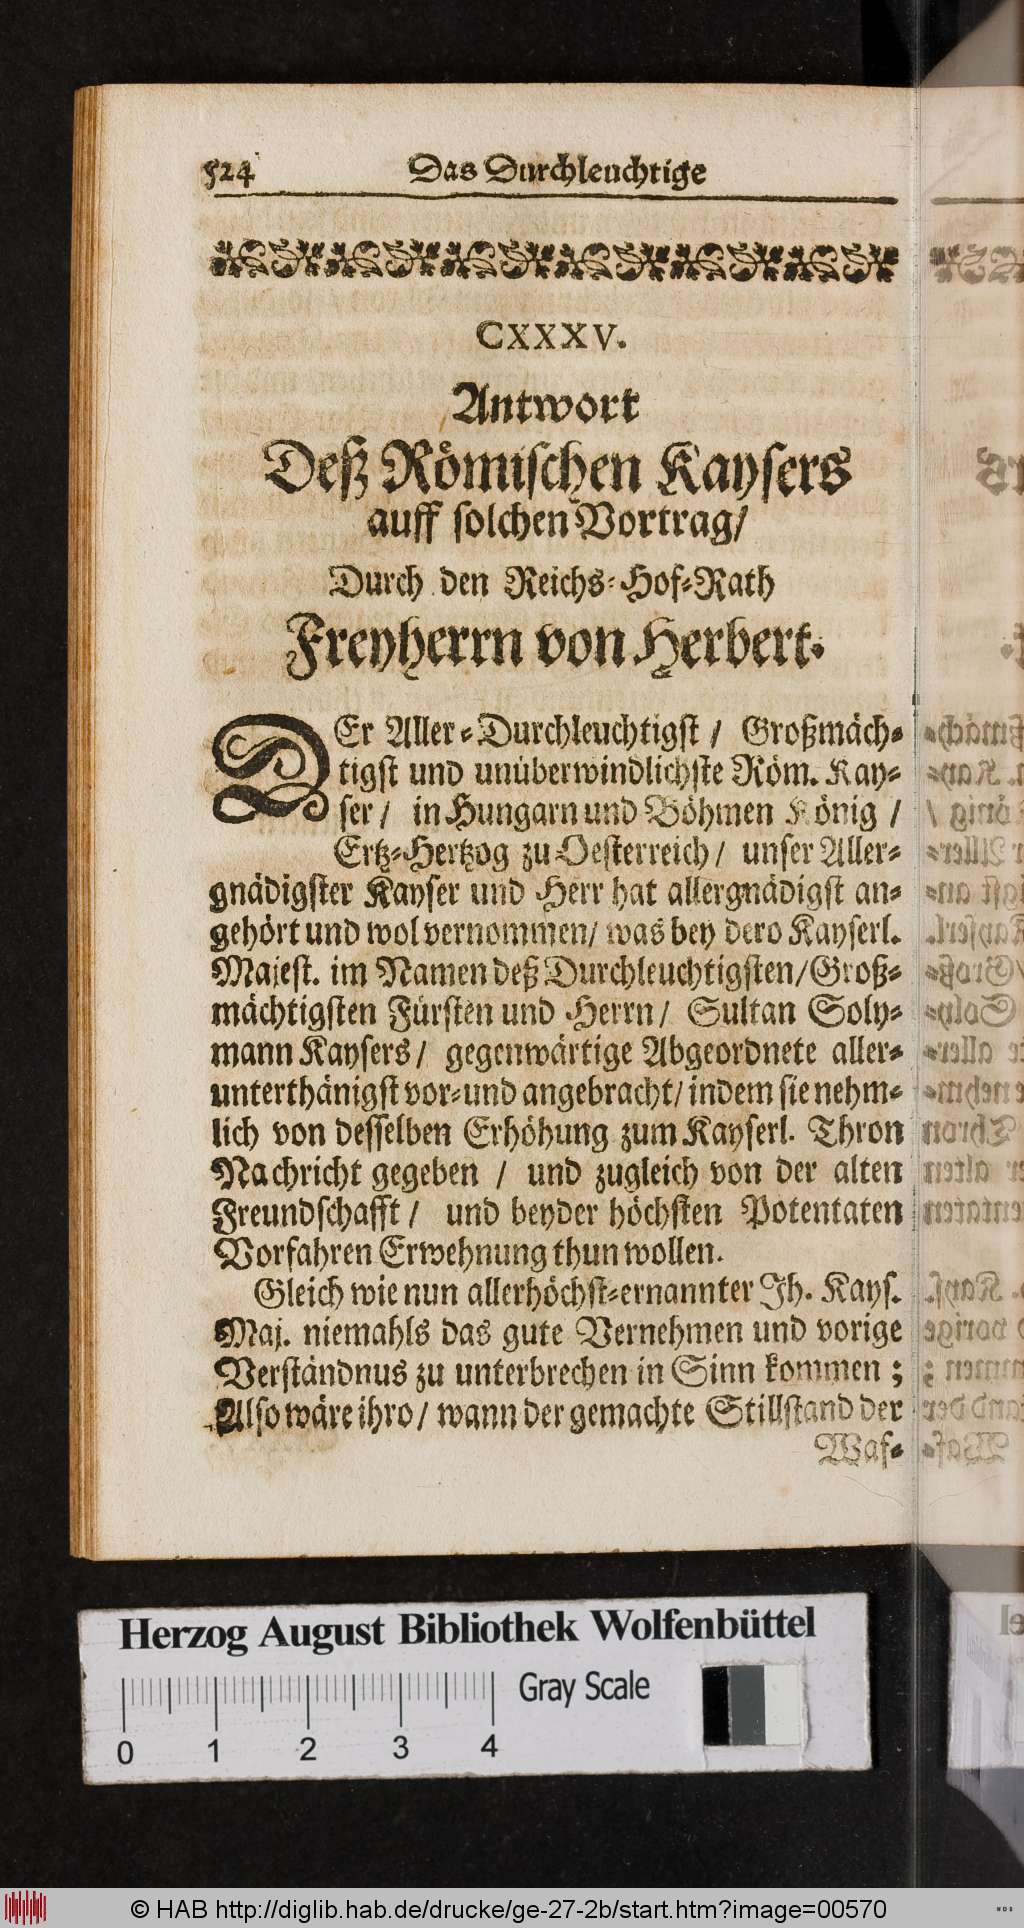 524 Das Durchleuchtige
CXXXV.
Antwort
Deß Römischen Kaysers
auff solchen Vortrag/
Durch den Reichs-Hof-Rath
Freyherrn von Herbert.
DEr Aller-Durchleuchtigst / Großmäch-
tigst und unüberwindlichste Röm. Kay-
ser / in Hungarn und Böhmen König /
Ertz-Hertzog zu Oesterreich / unser Aller-
gnädigster Kayser und Herr hat allergnädigst an-
gehört und wol vernommen / was bey dero Kayserl.
Majest. im Namen deß Durchleuchtigsten / Groß-
mächtigsten Fürsten und Herrn / Sultan Soly-
mann Kaysers / gegenwärtige Abgeordnete aller-
unterthänigst vor-und angebracht / indem sie nehm-
lich von desselben Erhöhung zum Kayserl. Thron
Nachricht gegeben / und zugleich von der alten
Freundschafft / und beyder höchsten Potentaten
Vorfahren Erwehnung thun wollen.
Gleich wie nun allerhöchst-ernannter Ih. Kays.
Maj. niemahls das gute Vernehmen und vorige
Verständnus zu unterbrechen in Sinn kommen ;
Also wäre ihro / wann der gemachte Stillstand der
Waf-
Herzog August Bibliothek Wolfenbüttel
Gray Scale
0 1 2 3 4
© HAB http://diglib.hab.de/drucke/ge-27-2b/start.htm?image=00570